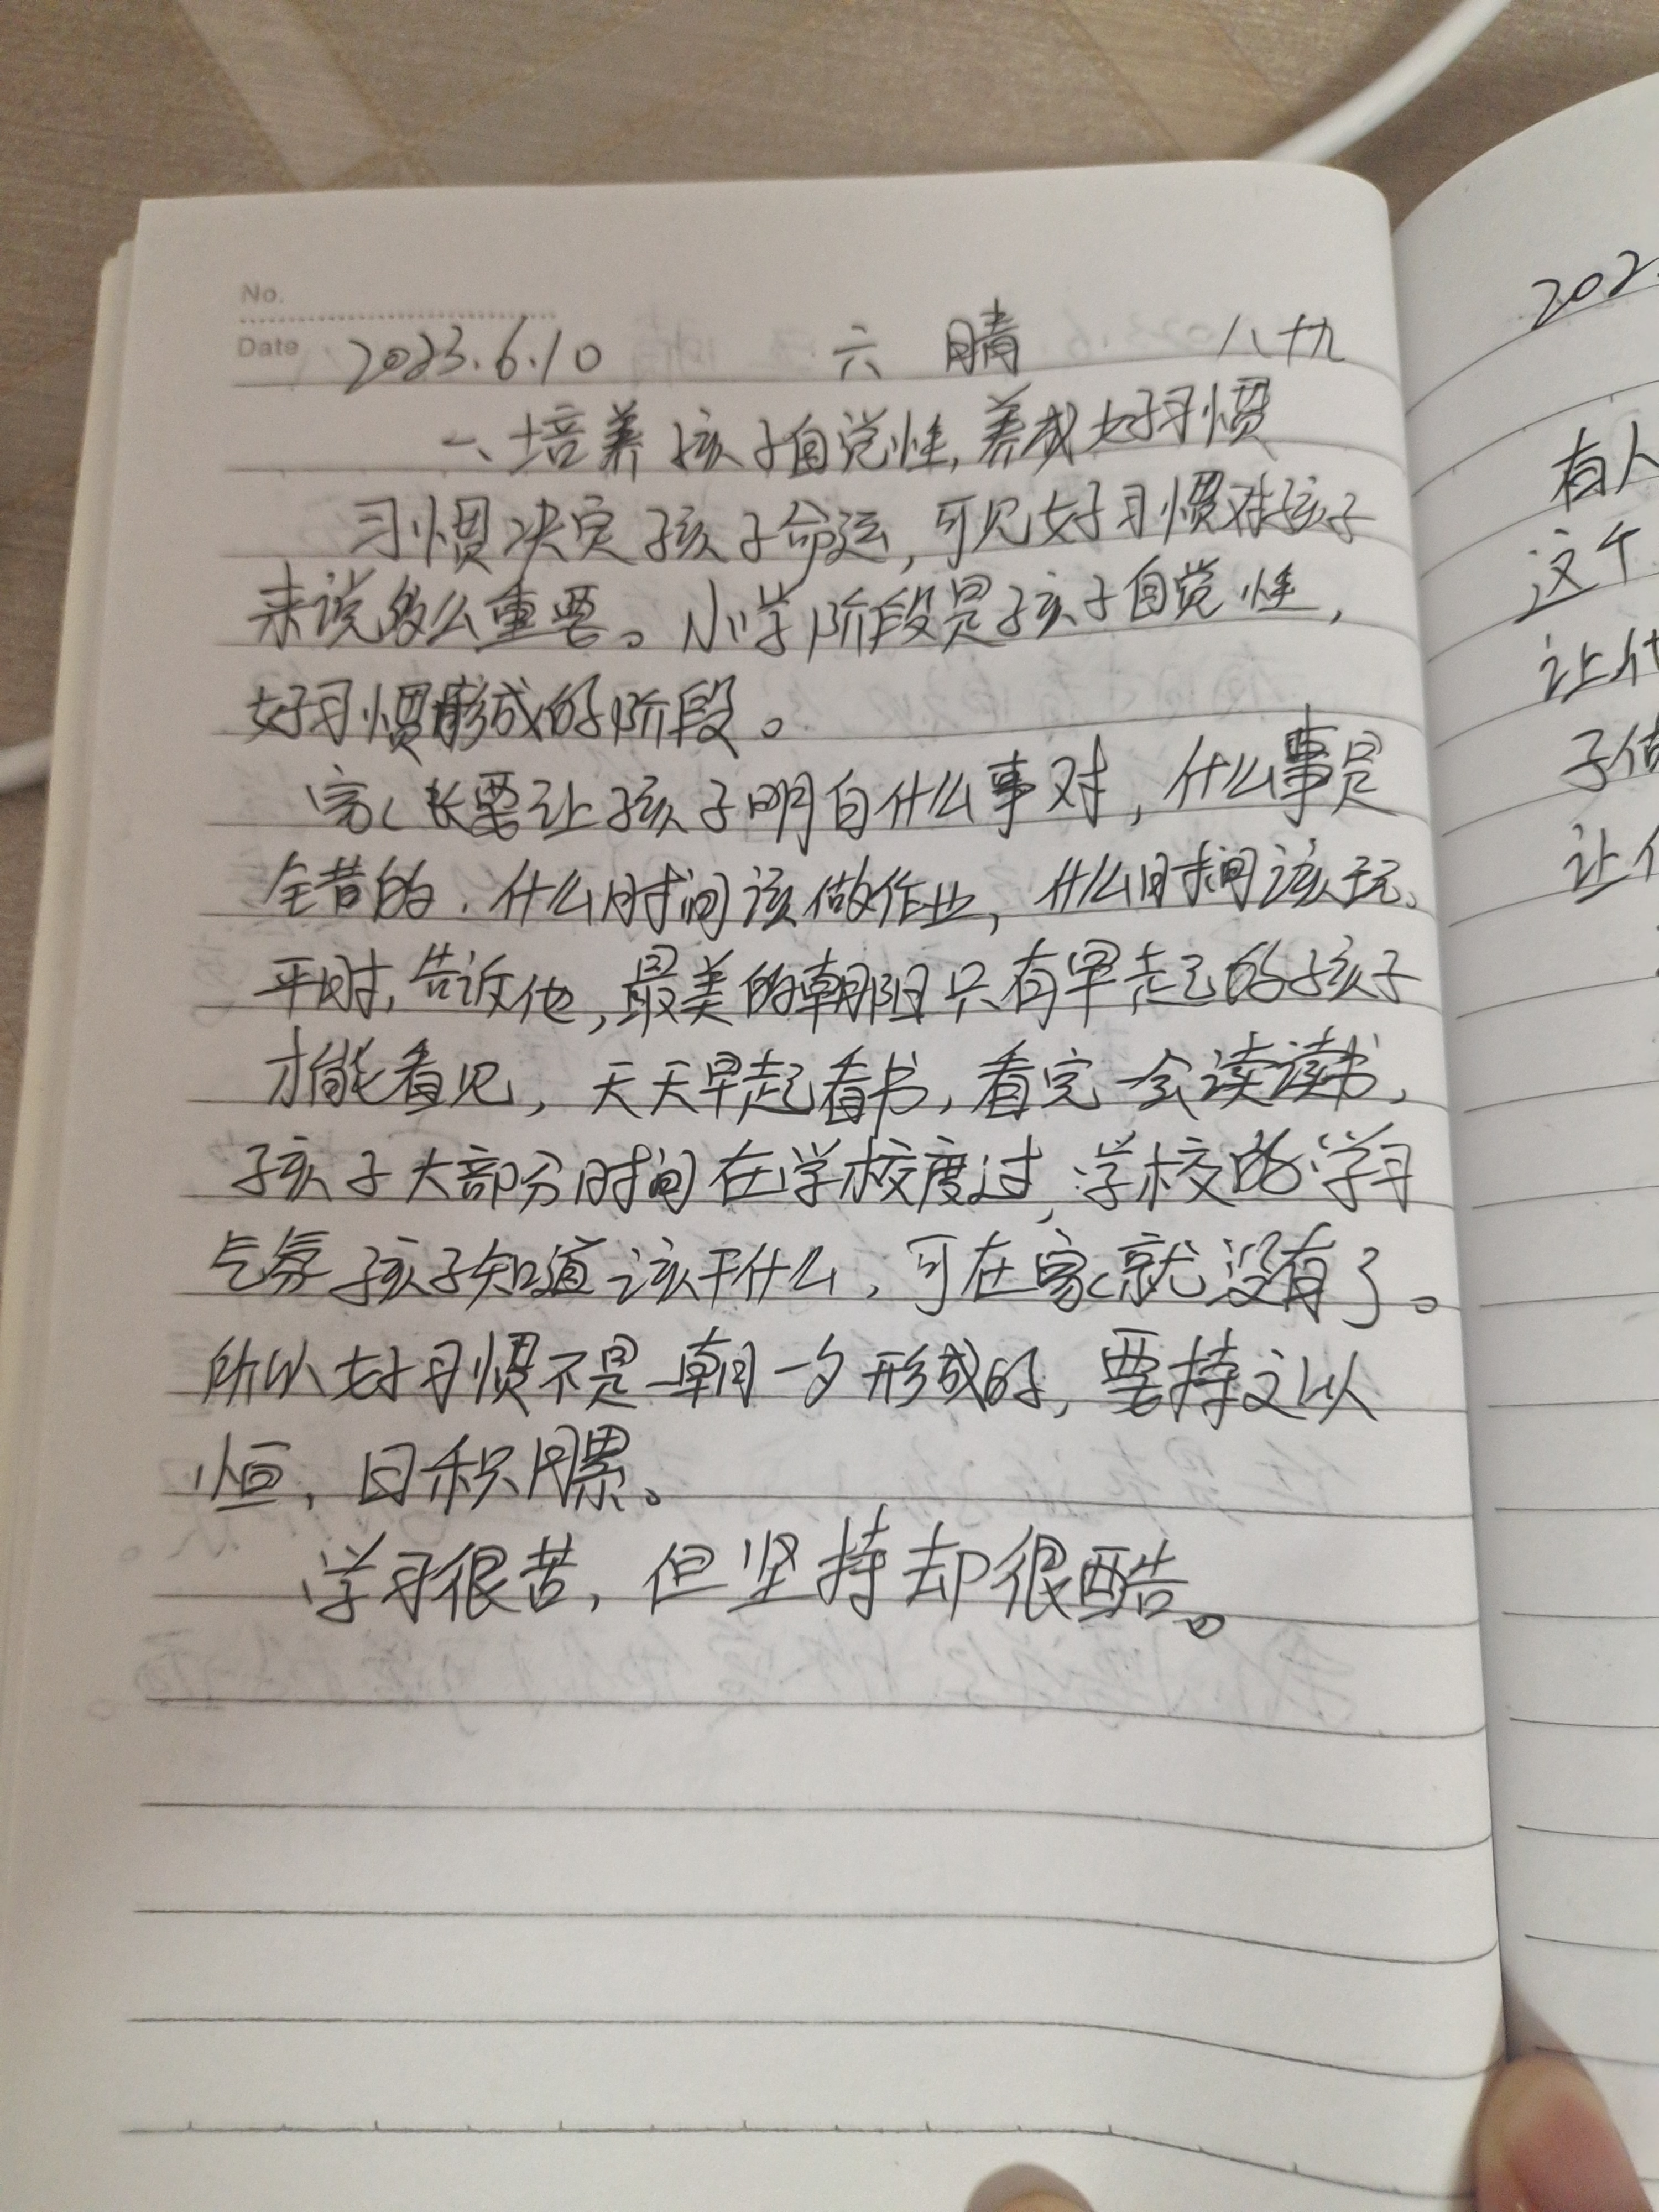 No.
Date 2023.6.10 六 晴 八十九
一、培养孩子自觉性,养成好习惯
习惯决定孩子命运,可见好习惯对孩子
来说多么重要。小学阶段是孩子自觉性,
好习惯形成的阶段。
家长要让孩子明白什么事对,什么事是
错的.什么时间该做作业,什么时间该玩、
平时,告诉他,最美的朝阳只有早起的孩子
才能看见,天天早起看书,看完一会读读书,
孩子大部分时间在学校度过,学校的学习
气氛孩子知道该干什么,可在家就没有了。
所以好习惯不是一朝一夕形成的,要持之以
恒,日积月累。
学习很苦,但坚持却很酷。
202
有人
这个
让他
子做
让